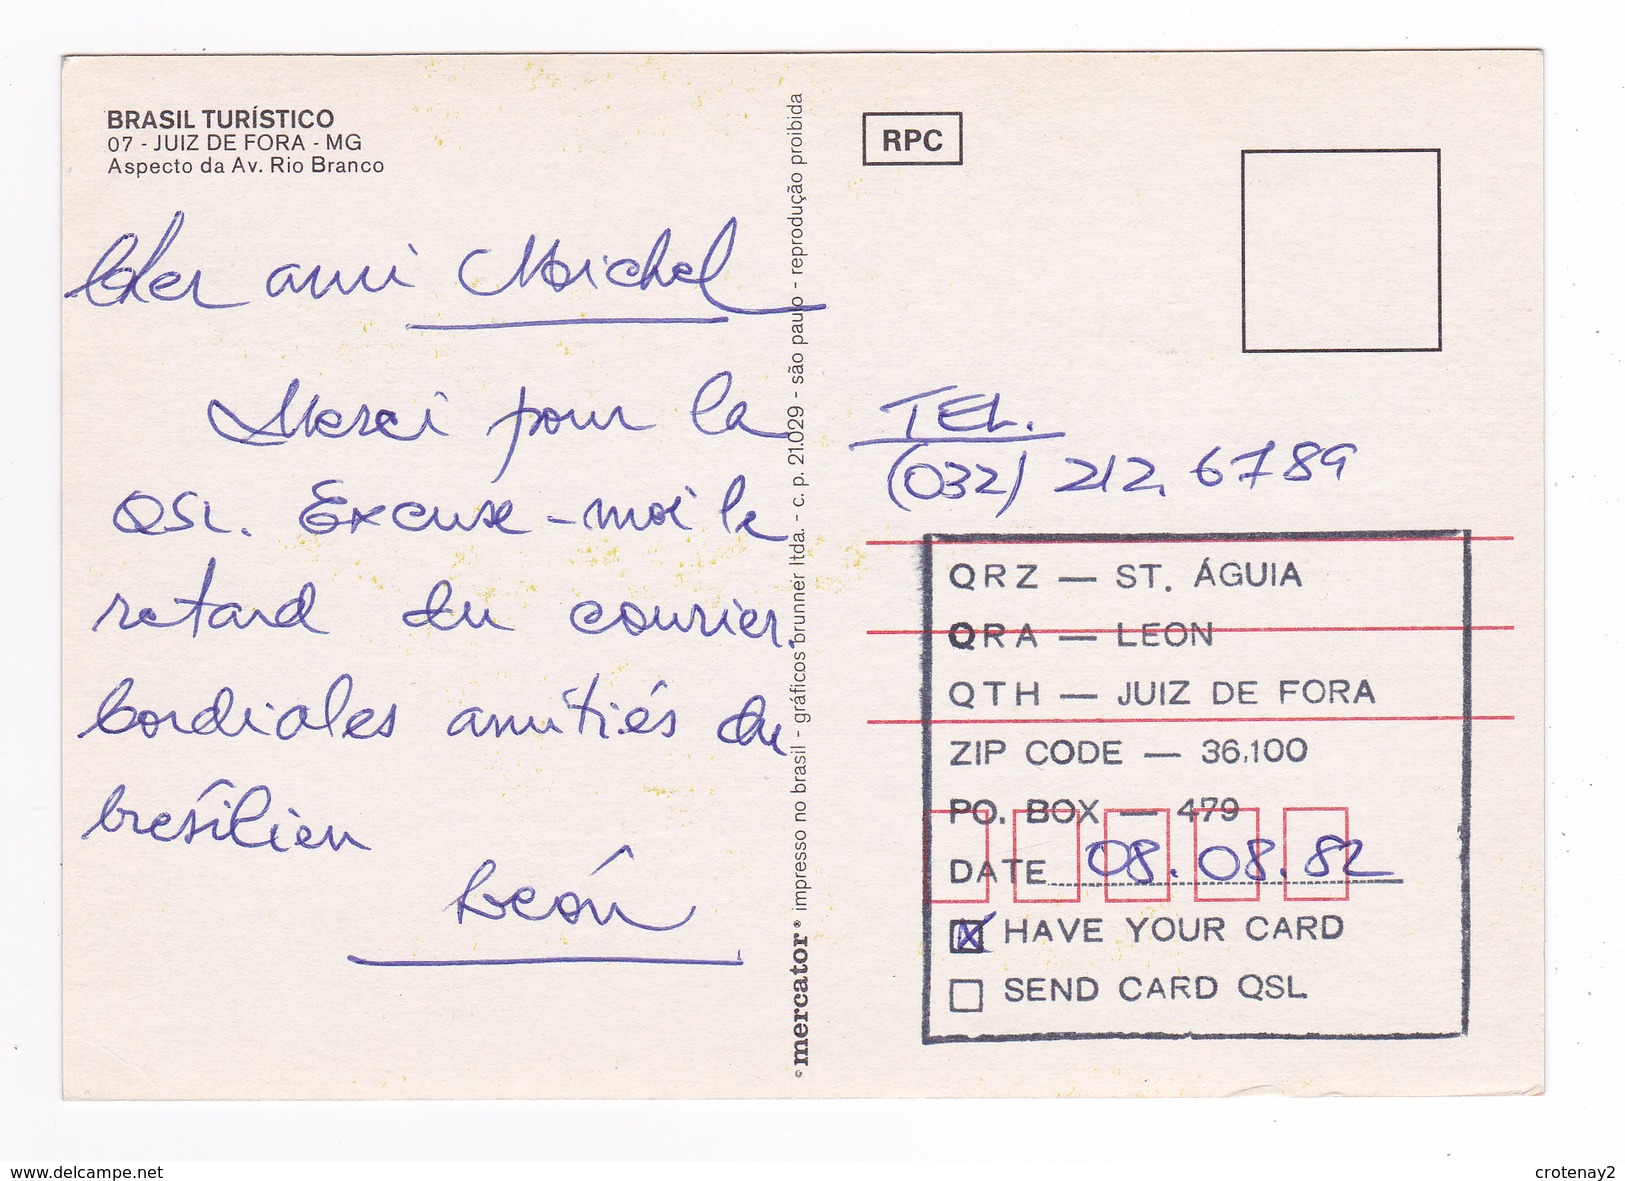 BRASIL TURÍSTICO
07 - JUIZ DE FORA - MG
Aspecto da Av. Rio Branco
Cher ami Michel
Merci pour la
QSL. Excuse-moi le
retard du courier.
Cordiales amitiés du
brésilien
León
© mercator ® impresso no brasil - gráficos brunner ltda. - c. p. 21.029 - são paulo - reprodução proibida
RPC
TEL.
(032) 212.6789
QRZ — ST. ÁGUIA
QRA — LEON
QTH — JUIZ DE FORA
ZIP CODE — 36.100
PO. BOX — 479
DATE 08.08.82
X HAVE YOUR CARD
SEND CARD QSL
www.delcampe.net
crotenay2